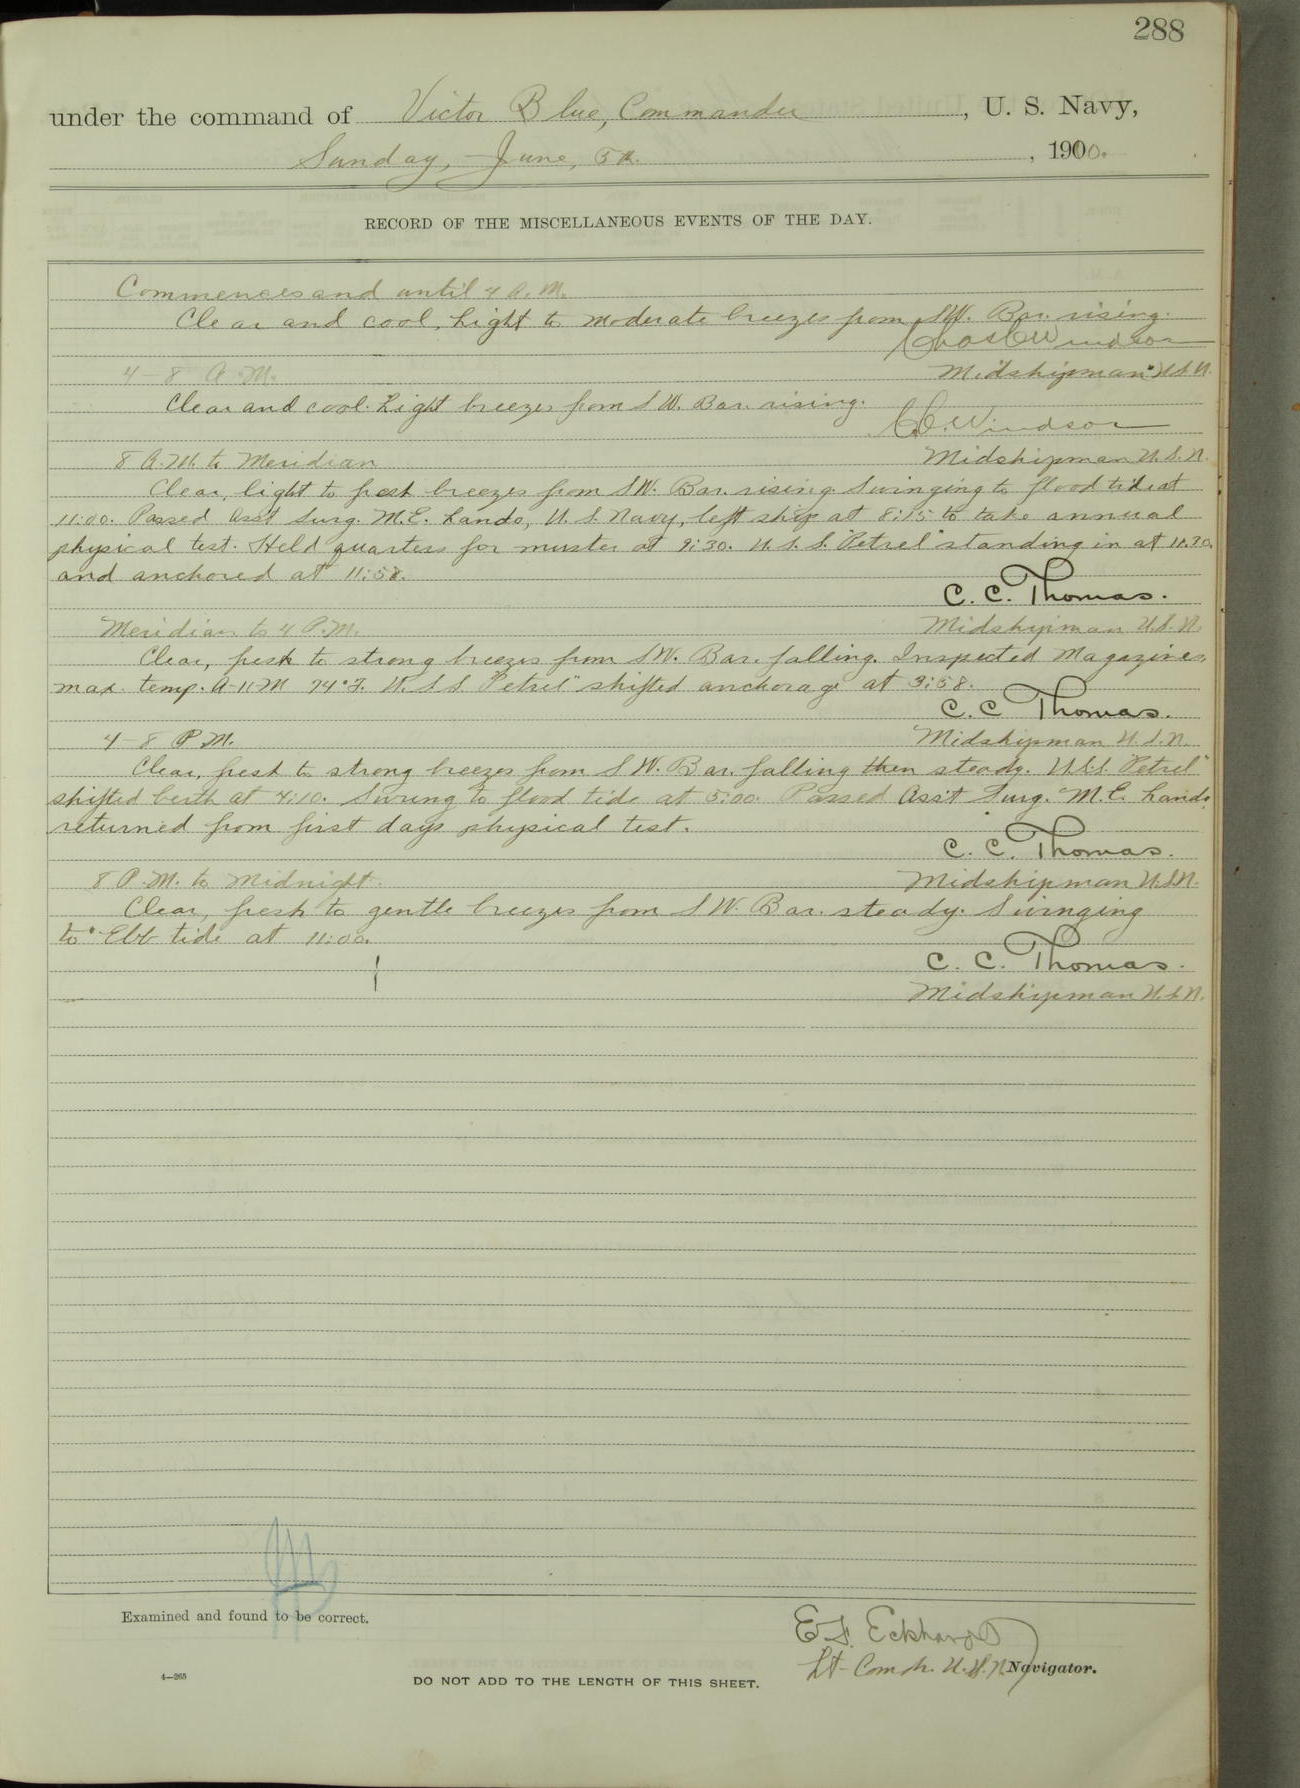 288
under the command of Victor Blue, Commander, U. S. Navy,
Sunday, June, 5th, 1900.
RECORD OF THE MISCELLANEOUS EVENTS OF THE DAY.
Commences and until 4 A.M.
Clear and cool, Light to moderate breezes from SW. Bar. rising.
Chas C Windsor
4-8 A.M.
Midshipman U.S.N.
Clear and cool. Light breezes from SW. Bar. rising.
C.C. Windsor
8 A.M. to Meridian
Midshipman U.S.N.
Clear, light to fresh breezes from SW. Bar. rising. Swinging to flood tide at
11:00. Passed Asst Surg. M.E. Lando, U.S. Navy, left ship at 8:15 to take annual
physical test. Held quarters for muster at 9:30. U.S.S. "Petrel" standing in at 11.30,
and anchored at 11:58.
C. C. Thomas.
Meridian to 4 P.M.
Midshipman U.S.N.
Clear, fresh to strong breezes from SW. Bar. falling. Inspected Magazines,
max. temp. A-11-M 74°F. U.S.S. "Petrel" shifted anchorage at 3:58.
C. C Thomas.
4-8 P.M.
Midshipman U.S.N.
Clear, fresh to strong breezes from SW. Bar. falling then steady. U.S.S. "Petrel"
shifted berth at 4:10. Swung to flood tide at 5:00. Passed Ass't Surg. M.E. Lando,
returned from first days physical test.
C. C. Thomas.
8 P.M. to Midnight.
Midshipman U.S.N.
Clear, fresh to gentle breezes from SW. Bar. steady. Swinging
to Ebb tide at 11:00.
C. C. Thomas.
Midshipman U.S.N.
Examined and found to be correct.
Lt-Comdr. U.S.N. Navigator.
4—265
DO NOT ADD TO THE LENGTH OF THIS SHEET.